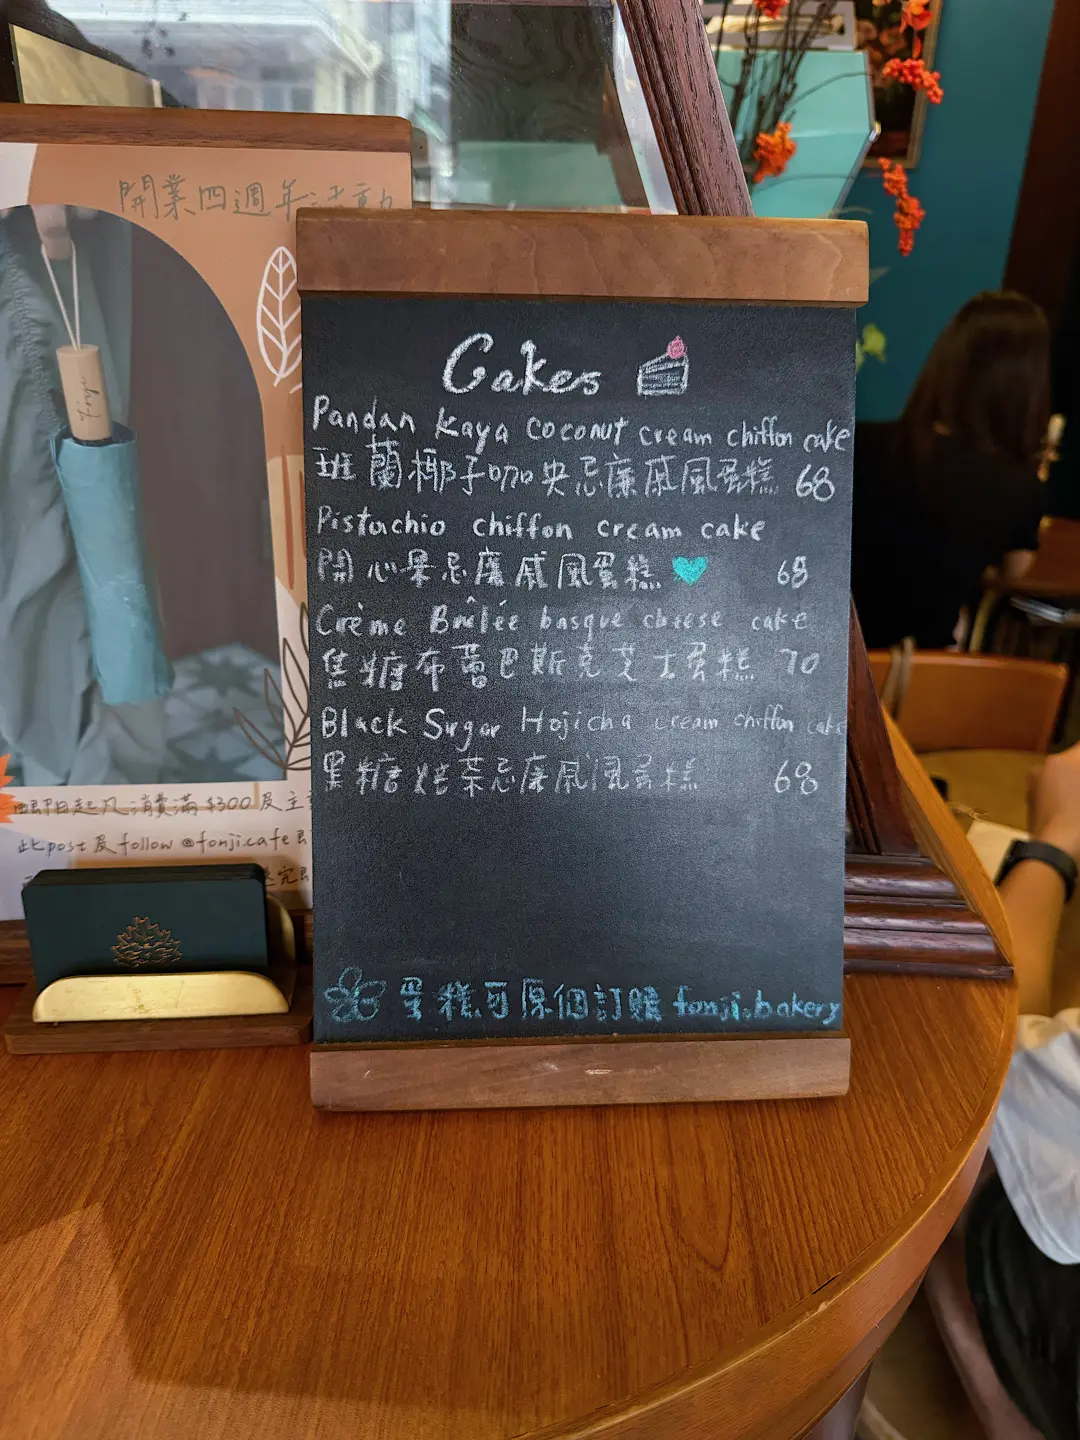 開業四週年活動
Cakes
Pandan Kaya coconut cream chiffon cake
班蘭椰子咖央忌廉戚風蛋糕 68
Pistachio chiffon cream cake
開心果忌廉戚風蛋糕 68
Crème Brûlée basque cheese cake
焦糖布蕾巴斯克芝士蛋糕 70
Black Sugar Hojicha cream chiffon cake
黑糖焙茶忌廉戚風蛋糕 68
蛋糕可原個訂購 fonji.bakery
即日起凡消費滿 $300 及主
此post及follow @fonji.cafe 即